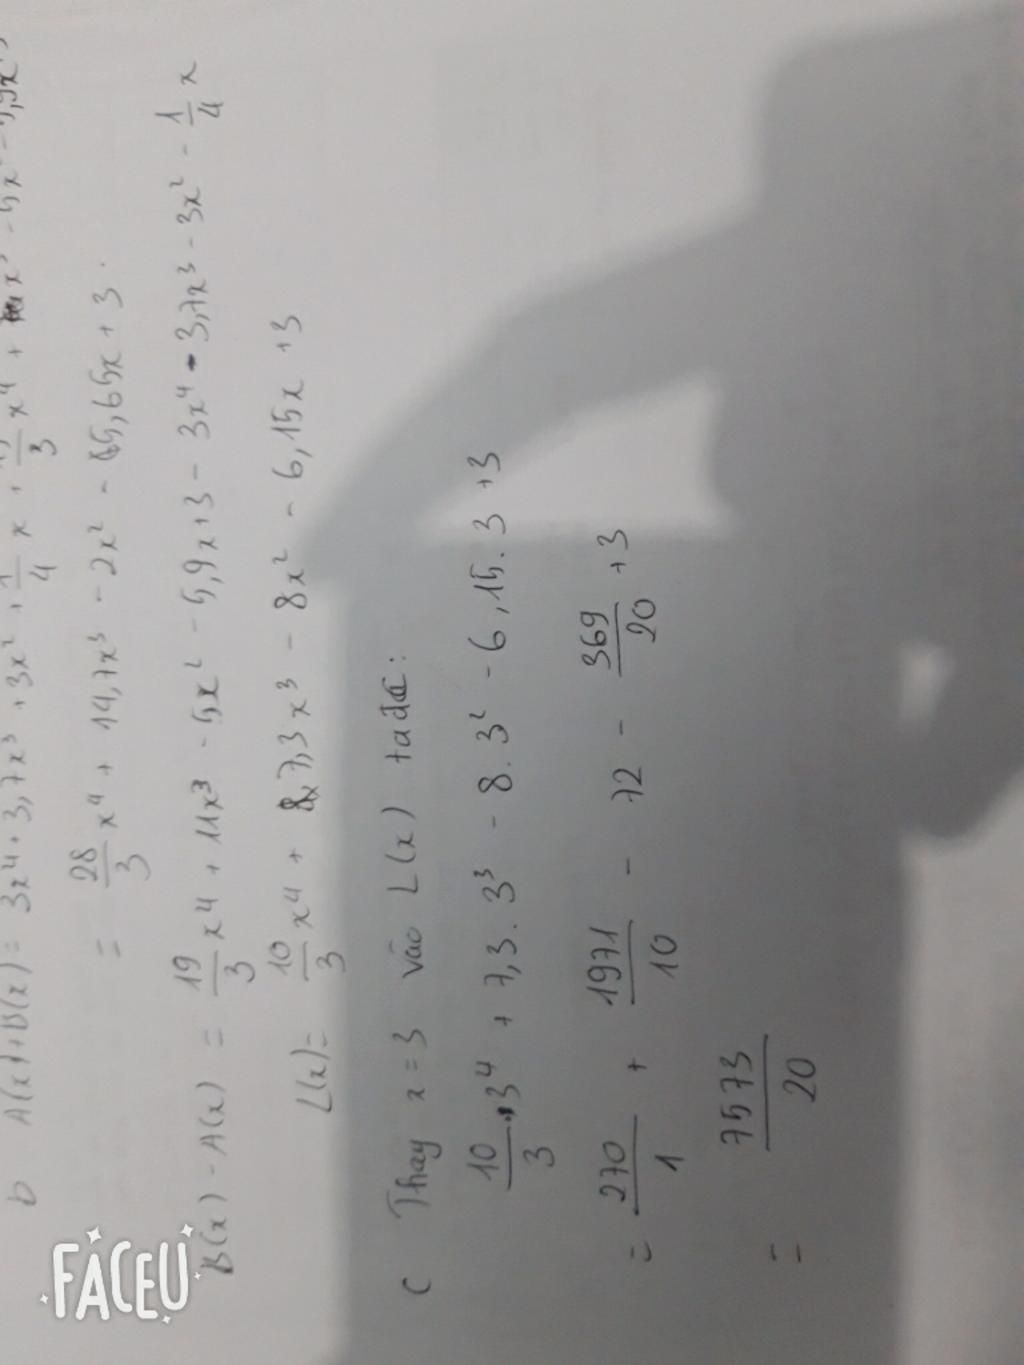 b A(x)+B(x) = 3x⁴ + 3,7x³ + 3x² + 1/4 x + 19/3 x⁴ + 11x³ - 5x² - 5,9x
= 28/3 x⁴ + 14,7x³ - 2x² - 5,65x + 3.
B(x) - A(x) = 19/3 x⁴ + 11x³ - 5x² - 5,9x + 3 - 3x⁴ - 3,7x³ - 3x² - 1/4 x
L(x) = 10/3 x⁴ + 7,3x³ - 8x² - 6,15x + 3
c Thay x = 3 vào L(x) ta đc:
10/3 . 3⁴ + 7,3 . 3³ - 8 . 3² - 6,15 . 3 + 3
= 270/1 + 1971/10 - 72 - 369/20 + 3
= 7573/20
FACEU